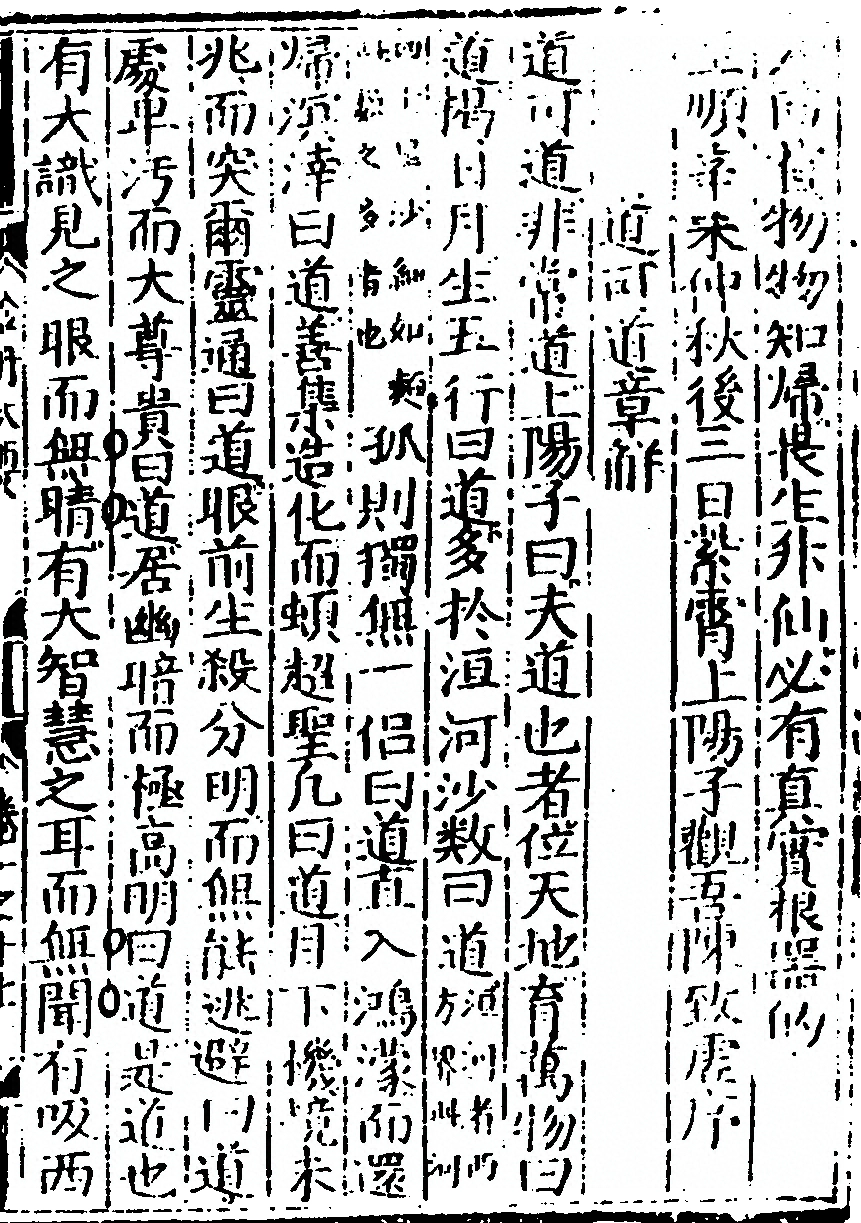 物物知歸畏生非仙必有真實根器的
順辛未仲秋後三日紫霄上陽子觀吾陳致虛序
道可道章解
道可道非常道上陽子曰夫道也者位天地育萬物曰
道揭日月生五行曰道多於洹河沙數曰道洹河者西方界此河
沙細如麵此類之多者也孤則獨無一侶曰道直入鴻濛而還
歸溟涬曰道善集造化而頓超聖凡曰道目下機境未
兆而突爾靈通曰道眼前生殺分明而無能逃避曰道
處卑汚而大尊貴曰道居幽暗而極高明曰道是道也
有大識見之眼而無睛有大智慧之耳而無聞有吸西